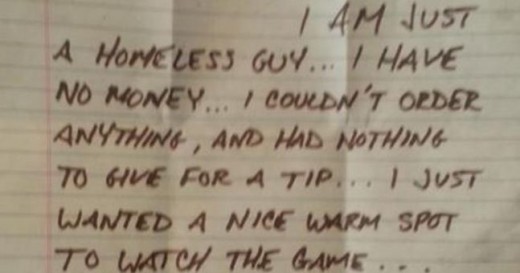 I AM JUST
A HOMELESS GUY... I HAVE
NO MONEY... I COULDN'T ORDER
ANYTHING, AND HAD NOTHING
TO GIVE FOR A TIP... I JUST
WANTED A NICE WARM SPOT
TO WATCH THE GAME...